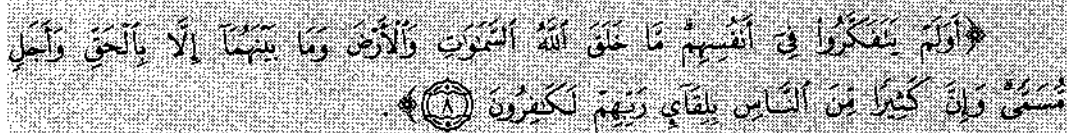 ﴿أَوَلَمْ يَتَفَكَّرُوا۟ فِىٓ أَنفُسِهِم مَّا خَلَقَ ٱللَّهُ ٱلسَّمَٰوَٰتِ وَٱلْأَرْضَ وَمَا بَيْنَهُمَآ إِلَّا بِٱلْحَقِّ وَأَجَلٍ
مُّسَمًّى وَإِنَّ كَثِيرًا مِّنَ ٱلنَّاسِ بِلِقَآئِ رَبِّهِمْ لَكَٰفِرُونَ ٨﴾.